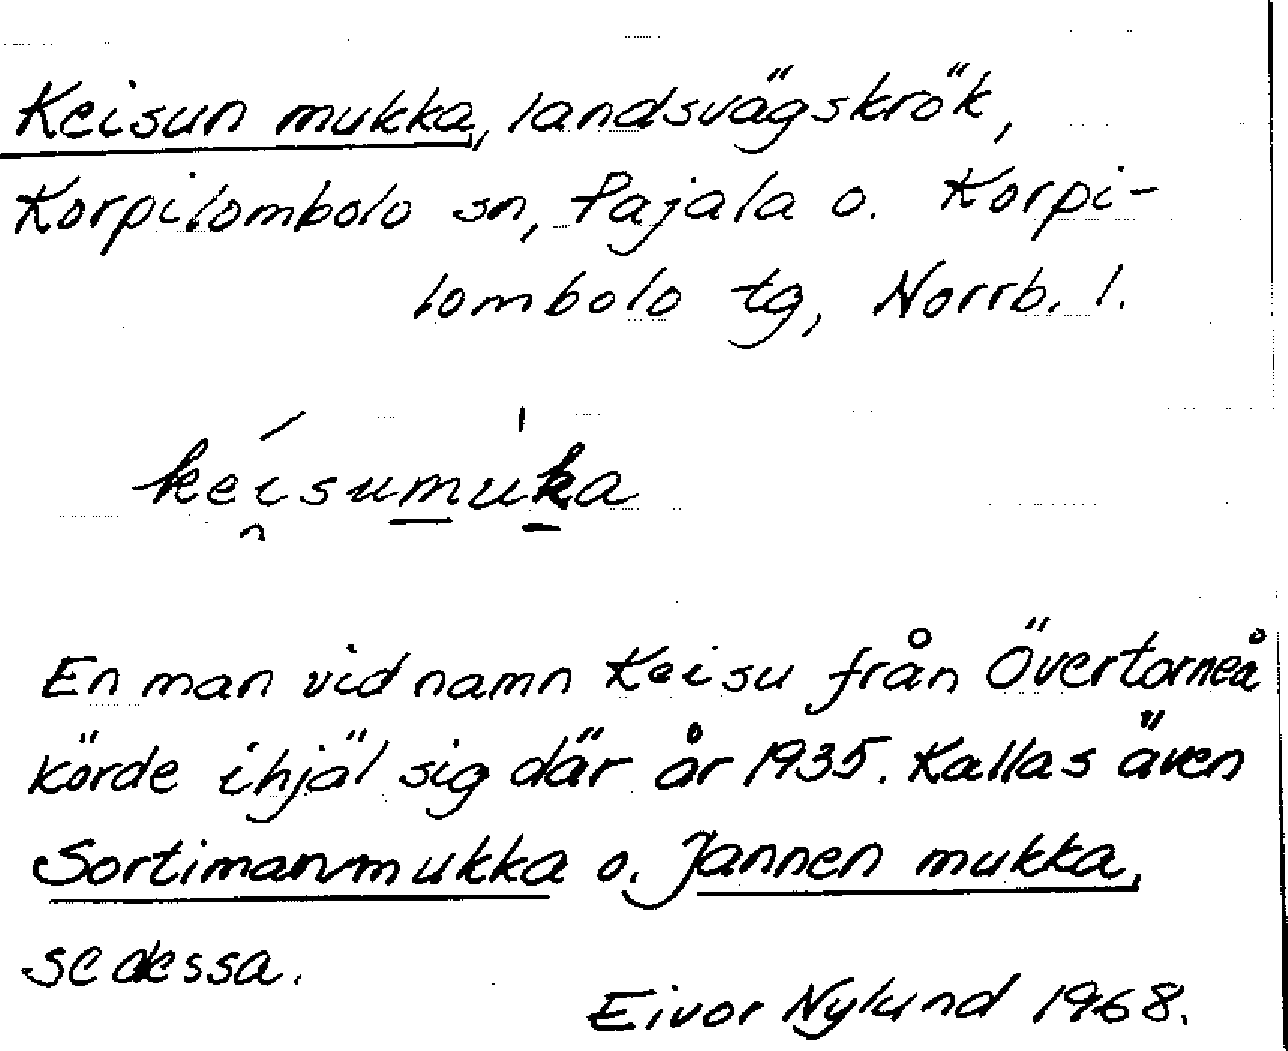 Keisun mukka, landsvägskrök,
Korpilombolo sn, Pajala o. Korpi-
lombolo tg, Norrb. l.
kei̯sumuka
En man vid namn Keisu från Övertorneå
körde ihjäl sig där år 1935. Kallas även
Sortimanmukka o. Jannen mukka,
se dessa.
Eivor Nylund 1968.